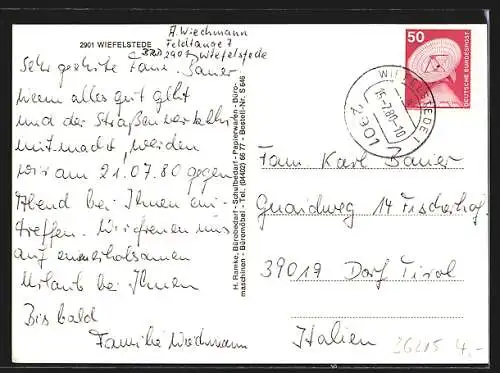 2901 WIEFELSTEDE
A. Wiechmann
Feldtange 7
2907 Wiefelstede
Sehr geehrte Fam. Bauer
wenn alles gut geht
und der Straßenverkehr
mitmacht, werden
wir am 21.07.80 gegen
Abend bei Ihnen ein-
treffen. Wir freuen uns
auf erholsamen
Urlaub bei Ihnen
Bis bald
Familie Wiechmann
H. Ramke, Bürobedarf - Schulbedarf - Papierwaren - Büro-
maschinen - Büromöbel - Tel. (04402) 66 77 - Bestell-Nr. S 646
50
DEUTSCHE BUNDESPOST
WIEFELSTEDE 1
15.-7.80-10
2901
Fam. Karl Bauer
Guaidweg 14 Fischerhof
39019 Dorf Tirol
Italien
36215 4,-